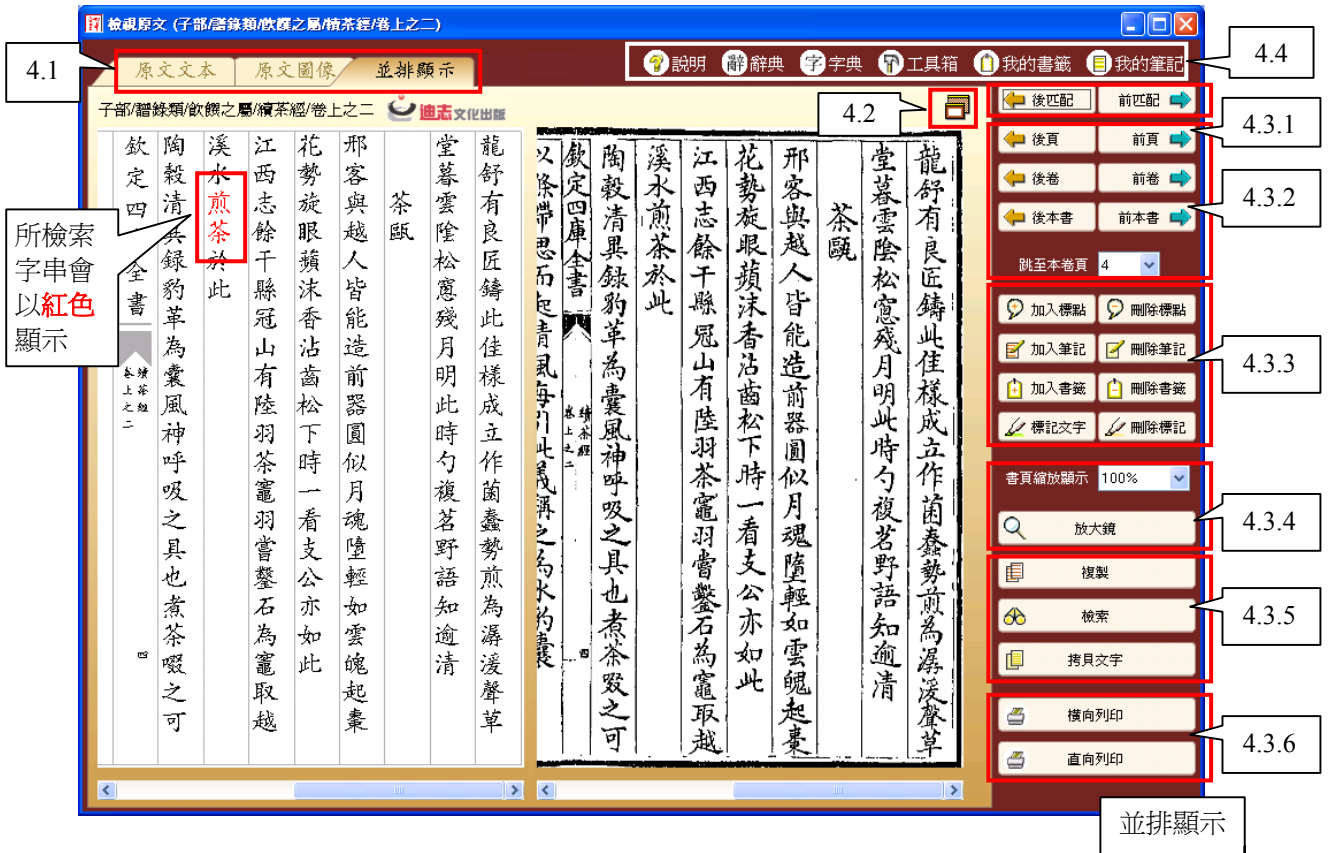 檢視原文 (子部/譜錄類/飲饌之屬/續茶經/卷上之二)
4.1
原文文本
原文圖像
並排顯示
說明
辭 辭典
字 字典
工具箱
我的書籤
我的筆記
4.4
子部/譜錄類/飲饌之屬/續茶經/卷上之二
迪志文化出版
4.2
龍舒有良匠鑄此佳樣成立作菌蠢勢煎為潺湲聲草
堂暮雲陰松窻殘月明此時勺複茗野語知逾清
茶甌
邢客與越人皆能造前器圓似月魂墮輕如雲魄起棗
花勢旋眼蘋沫香沾齒松下時一看支公亦如此
江西志餘干縣冠山有陸羽茶竈羽嘗鑿石為竈取越
溪水煎茶於此
陶穀清異録豹革為囊風神呼吸之具也煮茶啜之可
欽定四全書
續茶經
卷上之二
四
所檢索
字串會
以紅色
顯示
龍舒有良匠鑄此佳樣成立作菌蠢勢煎為潺湲聲草
堂暮雲陰松窻殘月明此時勺複茗野語知逾清
茶甌
邢客與越人皆能造前器圓似月魂墮輕如雲魄起棗
花勢旋眼蘋沫香沾齒松下時一看支公亦如此
江西志餘干縣冠山有陸羽茶竈羽嘗鑿石為竈取越
溪水煎茶於此
陶穀清異録豹革為囊風神呼吸之具也煮茶啜之可
欽定四庫全書
續茶經
卷上之二
四
後匹配
前匹配
4.3.1
後頁
前頁
後卷
前卷
後本書
前本書
跳至本卷頁 4
4.3.2
加入標點
刪除標點
加入筆記
刪除筆記
加入書籤
刪除書籤
標記文字
刪除標記
4.3.3
書頁縮放顯示 100%
放大鏡
4.3.4
複製
檢索
拷貝文字
4.3.5
橫向列印
直向列印
4.3.6
並排顯示